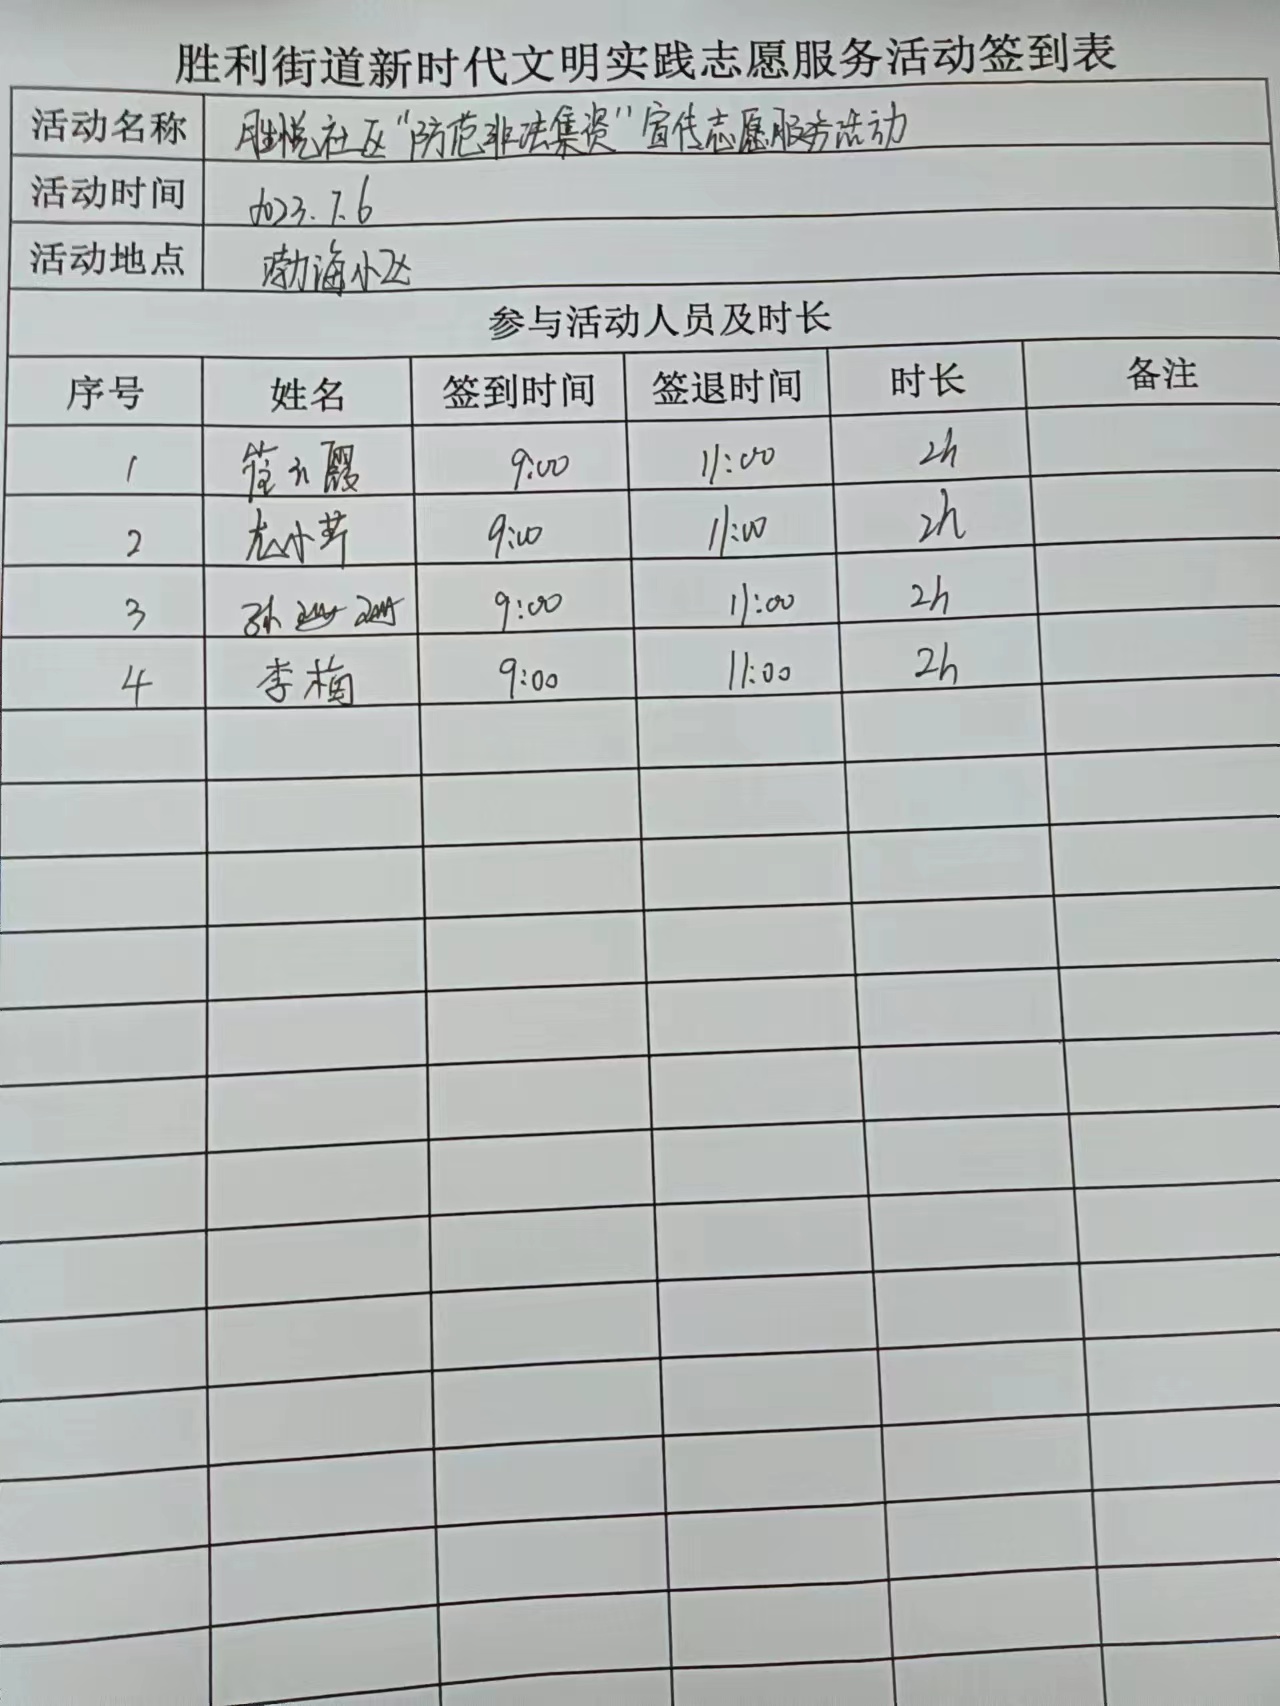 胜利街道新时代文明实践志愿服务活动签到表
活动名称 胜悦社区“防范非法集资”宣传志愿服务活动
活动时间 2023.7.6
活动地点 渤海小区
参与活动人员及时长
序号 姓名 签到时间 签退时间 时长 备注
1 霞 9:00 11:00 2h
2 尤小芹 9:00 11:00 2h
3 孙 9:00 11:00 2h
4 李梅 9:00 11:00 2h